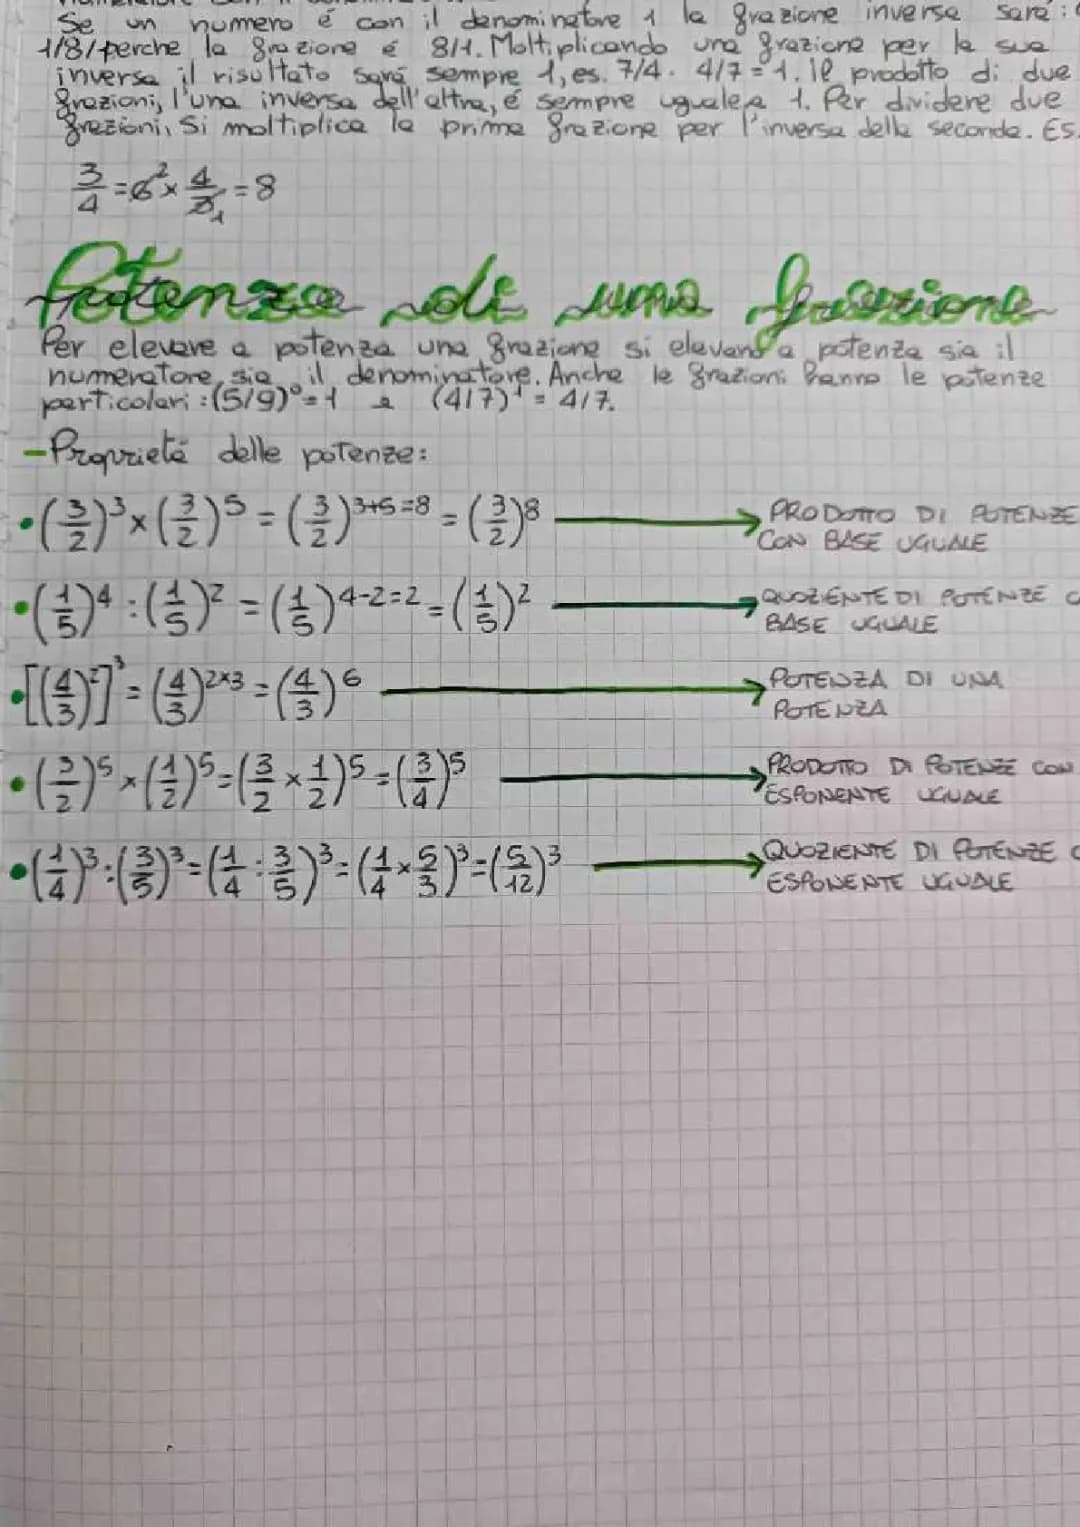 Se un numero é con il denominatore 1 la frazione inversa sará:
1/8/perche la frazione é 8/1. Moltiplicando una frazione per la sua
inversa il risultato sará sempre 1, es. 7/4 · 4/7 = 1. Il prodotto di due
frazioni, l'una inversa dell'altra, é sempre uguale a 1. Per dividere due
frazioni, si moltiplica la prima frazione per l'inversa della seconda. ES.
3/4 = 6² x 4/3₁ = 8
Potenza di una frazione
Per elevare a potenza una frazione si elevano a potenza sia il
numeratore, sia il denominatore. Anche le frazioni hanno le potenze
particolari: (5/9)⁰ = 1 e (4/7)¹ = 4/7.
- Proprietá delle potenze:
• (3/2)³ x (3/2)⁵ = (3/2)³⁺⁵⁼⁸ = (3/2)⁸ → PRODOTTO DI POTENZE
CON BASE UGUALE
• (1/5)⁴ : (1/5)² = (1/5)⁴⁻²⁼² = (1/5)² → QUOZIENTE DI POTENZE
BASE UGUALE
• [(4/3)²]³ = (4/3)²ˣ³ = (4/3)⁶ → POTENZA DI UNA
POTENZA
• (3/2)⁵ x (1/2)⁵ = (3/2 x 1/2)⁵ = (3/4)⁵ → PRODOTTO DI POTENZE CON
ESPONENTE UGUALE
• (1/4)³ : (3/5)³ = (1/4 : 3/5)³ = (1/4 x 5/3)³ = (5/12)³ → QUOZIENTE DI POTENZE
ESPONENTE UGUALE